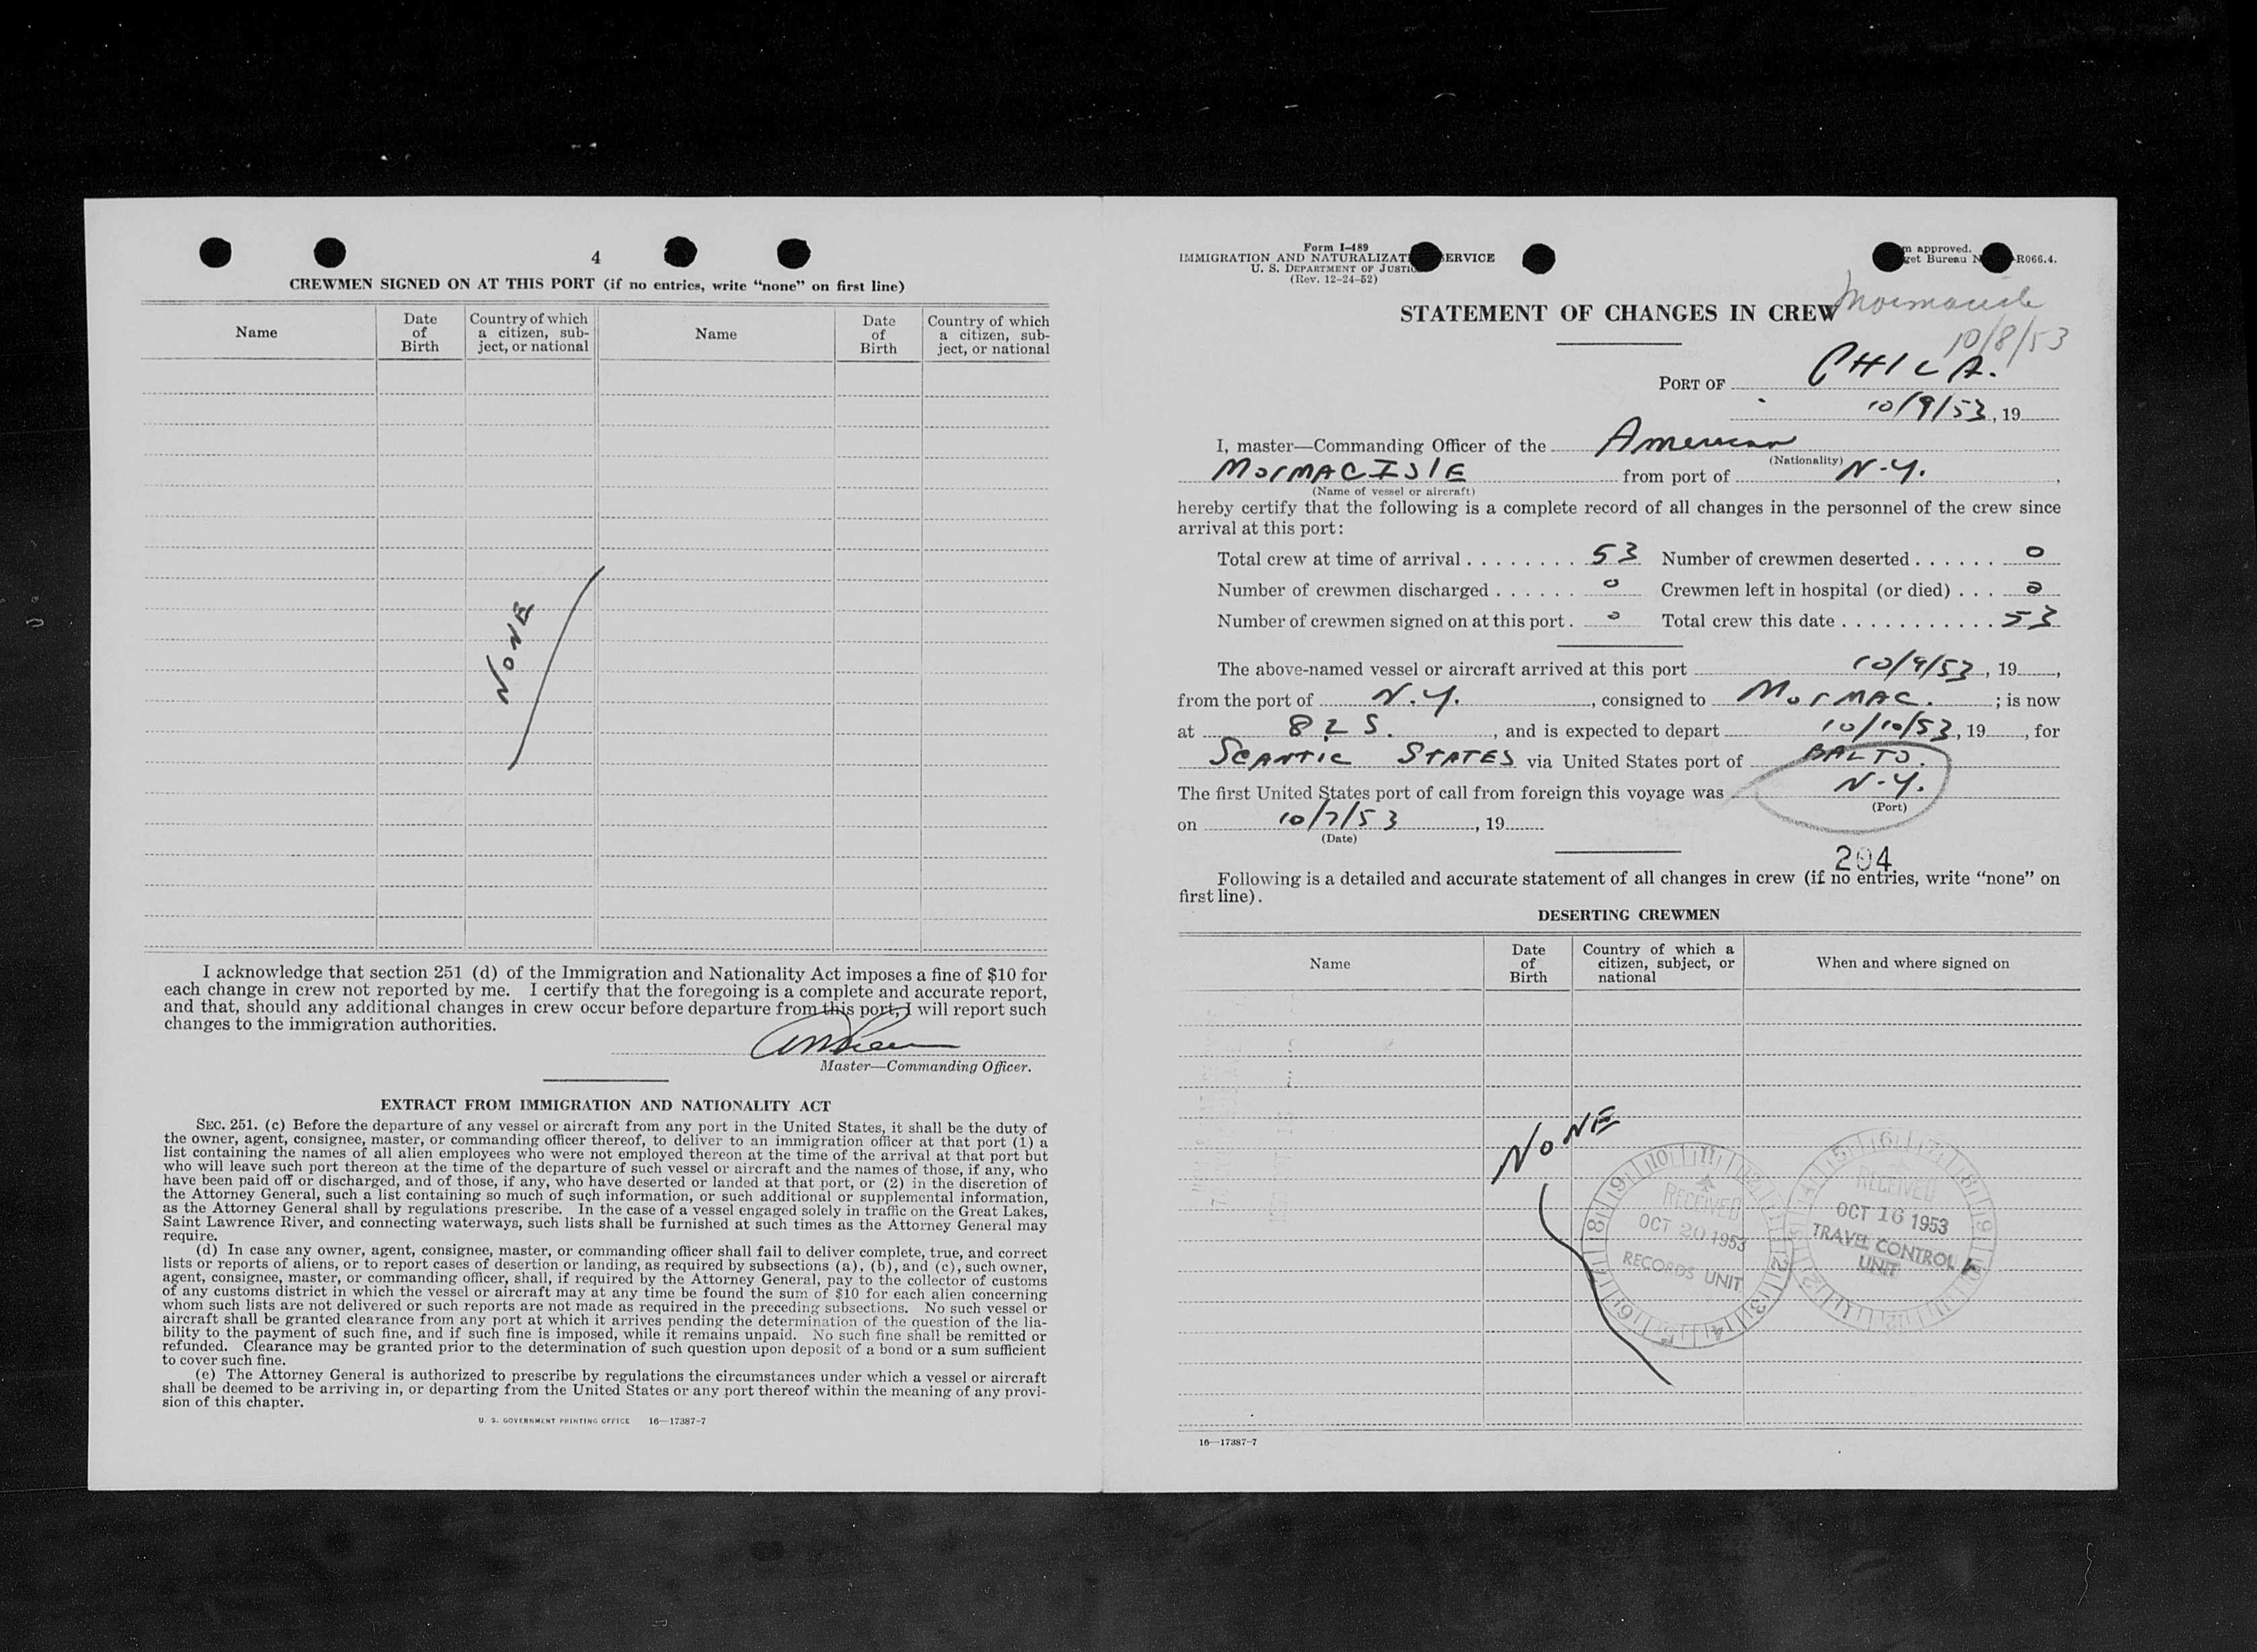 4
CREWMEN SIGNED ON AT THIS PORT (if no entries, write “none” on first line)
Name
Date of Birth
Country of which a citizen, subject, or national
Name
Date of Birth
Country of which a citizen, subject, or national
NONE
I acknowledge that section 251 (d) of the Immigration and Nationality Act imposes a fine of $10 for
each change in crew not reported by me. I certify that the foregoing is a complete and accurate report,
and that, should any additional changes in crew occur before departure from this port, I will report such
changes to the immigration authorities.
Master—Commanding Officer.
EXTRACT FROM IMMIGRATION AND NATIONALITY ACT
SEC. 251. (c) Before the departure of any vessel or aircraft from any port in the United States, it shall be the duty of
the owner, agent, consignee, master, or commanding officer thereof, to deliver to an immigration officer at that port (1) a
list containing the names of all alien employees who were not employed thereon at the time of the arrival at that port but
who will leave such port thereon at the time of the departure of such vessel or aircraft and the names of those, if any, who
have been paid off or discharged, and of those, if any, who have deserted or landed at that port, or (2) in the discretion of
the Attorney General, such a list containing so much of such information, or such additional or supplemental information,
as the Attorney General shall by regulations prescribe. In the case of a vessel engaged solely in traffic on the Great Lakes,
Saint Lawrence River, and connecting waterways, such lists shall be furnished at such times as the Attorney General may
require.
(d) In case any owner, agent, consignee, master, or commanding officer shall fail to deliver complete, true, and correct
lists or reports of aliens, or to report cases of desertion or landing, as required by subsections (a), (b), and (c), such owner,
agent, consignee, master, or commanding officer, shall, if required by the Attorney General, pay to the collector of customs
of any customs district in which the vessel or aircraft may at any time be found the sum of $10 for each alien concerning
whom such lists are not delivered or such reports are not made as required in the preceding subsections. No such vessel or
aircraft shall be granted clearance from any port at which it arrives pending the determination of the question of the lia-
bility to the payment of such fine, and if such fine is imposed, while it remains unpaid. No such fine shall be remitted or
refunded. Clearance may be granted prior to the determination of such question upon deposit of a bond or a sum sufficient
to cover such fine.
(e) The Attorney General is authorized to prescribe by regulations the circumstances under which a vessel or aircraft
shall be deemed to be arriving in, or departing from the United States or any port thereof within the meaning of any provi-
sion of this chapter.
U. S. GOVERNMENT PRINTING OFFICE 16—17387-7
Form I-489
IMMIGRATION AND NATURALIZATI ERVICE
U. S. DEPARTMENT OF JUSTIC
(Rev. 12-24-52)
m approved.
get Bureau N R066.4.
STATEMENT OF CHANGES IN CREW
Mormacisle
10/8/53
PORT OF PHILA.
10/9/53, 19
I, master—Commanding Officer of the American
(Nationality)
MORMACISLE from port of N.Y.,
(Name of vessel or aircraft)
hereby certify that the following is a complete record of all changes in the personnel of the crew since
arrival at this port:
Total crew at time of arrival 53 Number of crewmen deserted 0
Number of crewmen discharged 0 Crewmen left in hospital (or died) 0
Number of crewmen signed on at this port. 0 Total crew this date 53
The above-named vessel or aircraft arrived at this port 10/9/53, 19,
from the port of N.Y., consigned to MORMAC.; is now
at 82 S., and is expected to depart 10/10/53, 19, for
SCANTIC STATES via United States port of BALTO.
The first United States port of call from foreign this voyage was N.Y.
(Port)
on 10/7/53, 19
(Date)
204
Following is a detailed and accurate statement of all changes in crew (if no entries, write “none” on
first line).
DESERTING CREWMEN
Name
Date of Birth
Country of which a citizen, subject, or national
When and where signed on
NONE
RECEIVED
OCT 20 1953
RECORDS UNIT
RECEIVED
OCT 16 1953
TRAVEL CONTROL
UNIT
16—17387-7